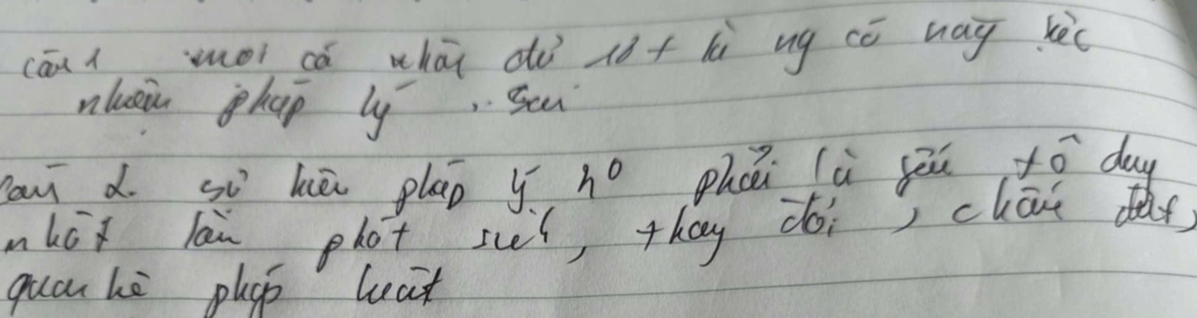 câu 1 mọi cá nhân đủ 18+ là ng có
nhiệm pháp lý. Sai
câu 2. sự kiện pháp lý ko phải là yếu tố duy
nhất làm phát sinh, thay đổi, chấm dứt,
quan hệ pháp luật